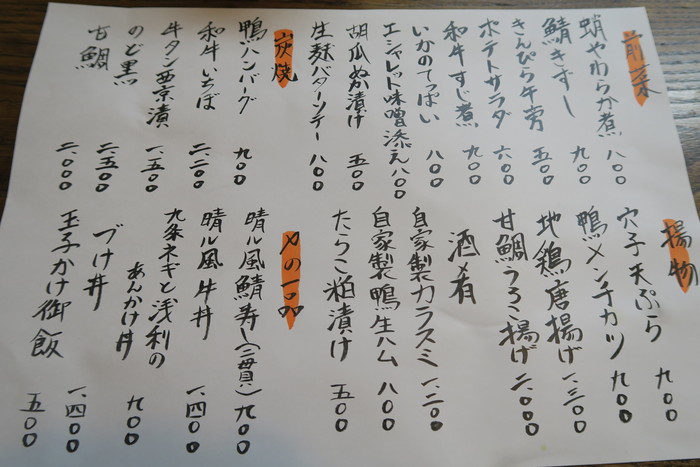 前菜
蛸やわらか煮 八〇〇
鯖きずし 九〇〇
きんぴら牛蒡 五〇〇
ポテトサラダ 六〇〇
和牛すじ煮 九〇〇
いかのてっぱい 八〇〇
エシャレット味噌添え 八〇〇
胡瓜ぬか漬け 五〇〇
生麩バターソテー 八〇〇
炭焼
鴨ハンバーグ 九〇〇
和牛いちぼ 二、二〇〇
牛タン西京漬 一、五〇〇
のど黒 二、五〇〇
甘鯛 二、〇〇〇
揚物
穴子天ぷら 九〇〇
鴨メンチカツ 九〇〇
地鶏唐揚げ 一、三〇〇
甘鯛うろこ揚げ 二、〇〇〇
酒肴
自家製カラスミ 一、二〇〇
自家製鴨生ハム 八〇〇
たらこ粕漬け 五〇〇
〆の一品
晴ル風鯖寿し(二貫) 九〇〇
晴ル風牛丼 一、四〇〇
九条ネギと浅利の
あんかけ丼 九〇〇
づけ丼 一、四〇〇
玉子かけ御飯 五〇〇